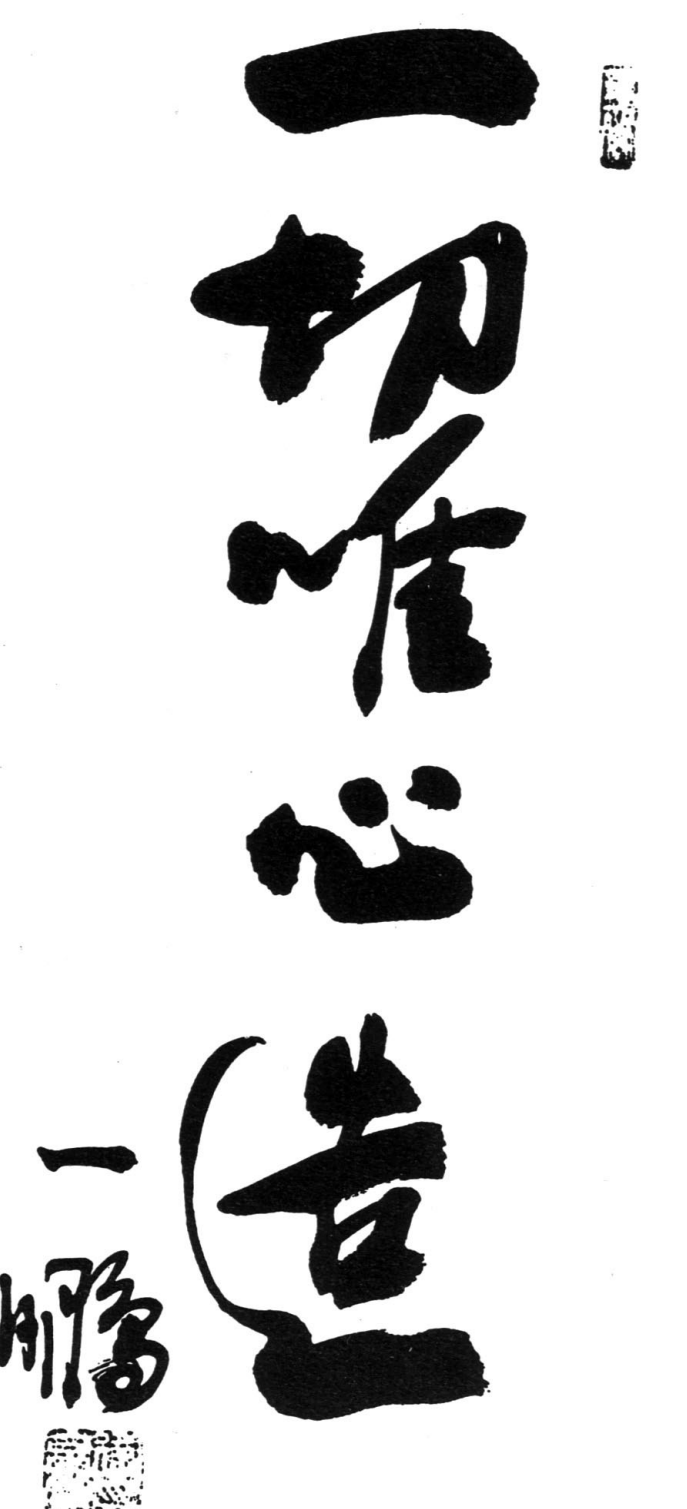 一切唯心造
一鵬